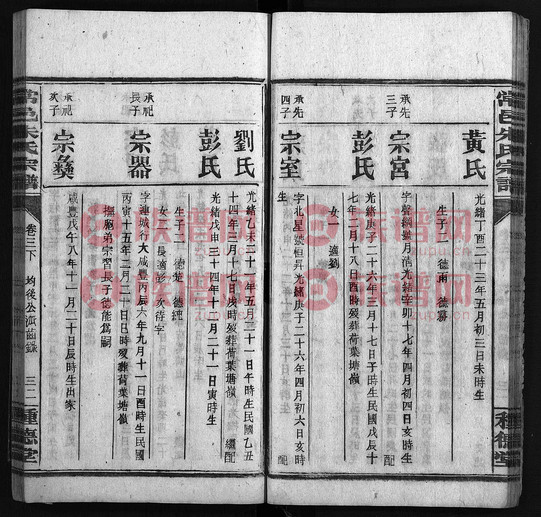 常邑朱氏宗譜
種德堂
黃氏
光緒丁酉二十三年五月初三日未時生
生子二 德甫 德慕
承先三子
宗宮
配
彭氏
光緒庚子二十六年三月十七日子時生民國戊辰十
七年三月十八日酉時歿葬荷葉塘嶺
女一 適劉
承先四子
宗室
字北星號恒昇光緒庚子二十六年四月初六日亥時
生 配
劉氏
光緒乙未二十一年五月三十一日午時生民國乙丑
十四年三月十七日戌時歿葬荷葉塘嶺 繼配
彭氏
光緒戊申三十四年十月二十一日寅時生
生子二 德楚 德純
女二 長適彭 次待字
承祀長子
宗器
字連城行大咸豐丙辰六年九月十一日酉時生民國
丙寅十五年二月二日巳時歿葬荷葉塘嶺
撫胞弟宗習長子德能爲嗣
承祀次子
宗彝
咸豐戊午八年十一月二十日辰時生出家
常邑朱氏宗譜
卷三下
均後公派齒錄
三二
種德堂
族譜网
zupu.cn